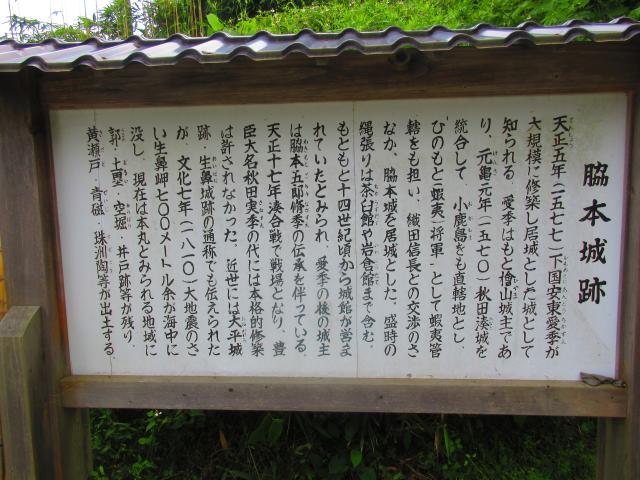 脇本城跡
天正五年(一五七七)下国安東愛季が
大規模に修築し居城とした城として
知られる。愛季はもと檜山城主であ
り、元亀元年(一五七〇)秋田湊城を
統合して、小鹿島をも直轄地とし
ひのもと(蝦夷)将軍、として蝦夷管
轄をも担い、織田信長との交渉のさ
なか、脇本城を居城とした。盛時の
縄張りは茶臼館や岩倉館まで含む
もともと十四世紀頃から城館が営ま
れていたとみられ、愛季の後の城主
は脇本五郎脩季の伝承を伴っている。
天正十七年湊合戦で戦場となり、豊
臣大名秋田実季の代には本格的修築
は許されなかった。近世には大平城
跡・生鼻城跡の通称でも伝えられた
が、文化七年(一八一〇)大地震のさ
い生鼻岬七〇〇メートル余が海中に
没し、現在は本丸とみられる地域に
郭・土塁・空堀・井戸跡等が残り、
黄瀬戸、青磁、珠洲陶等が出土する。